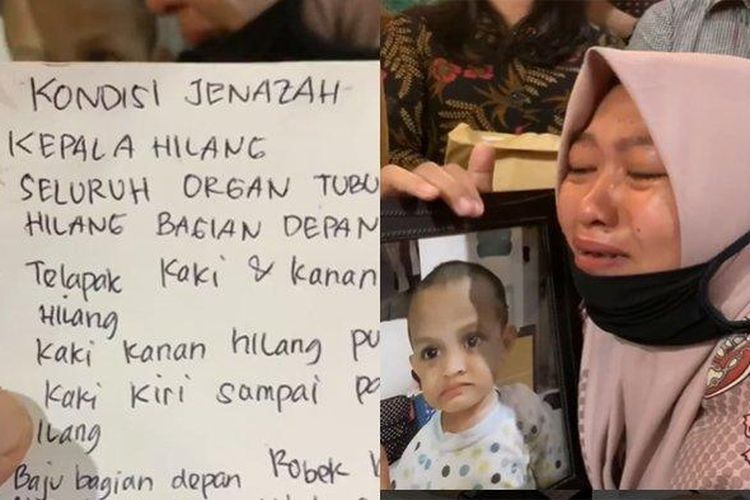 KONDISI JENAZAH
KEPALA HILANG
SELURUH ORGAN TUBU
HILANG BAGIAN DEPAN
Telapak Kaki & kanan
HILANG
Kaki kanan hilang pu
Kaki kiri sampai pa
ilang
Baju bagian depan Robek